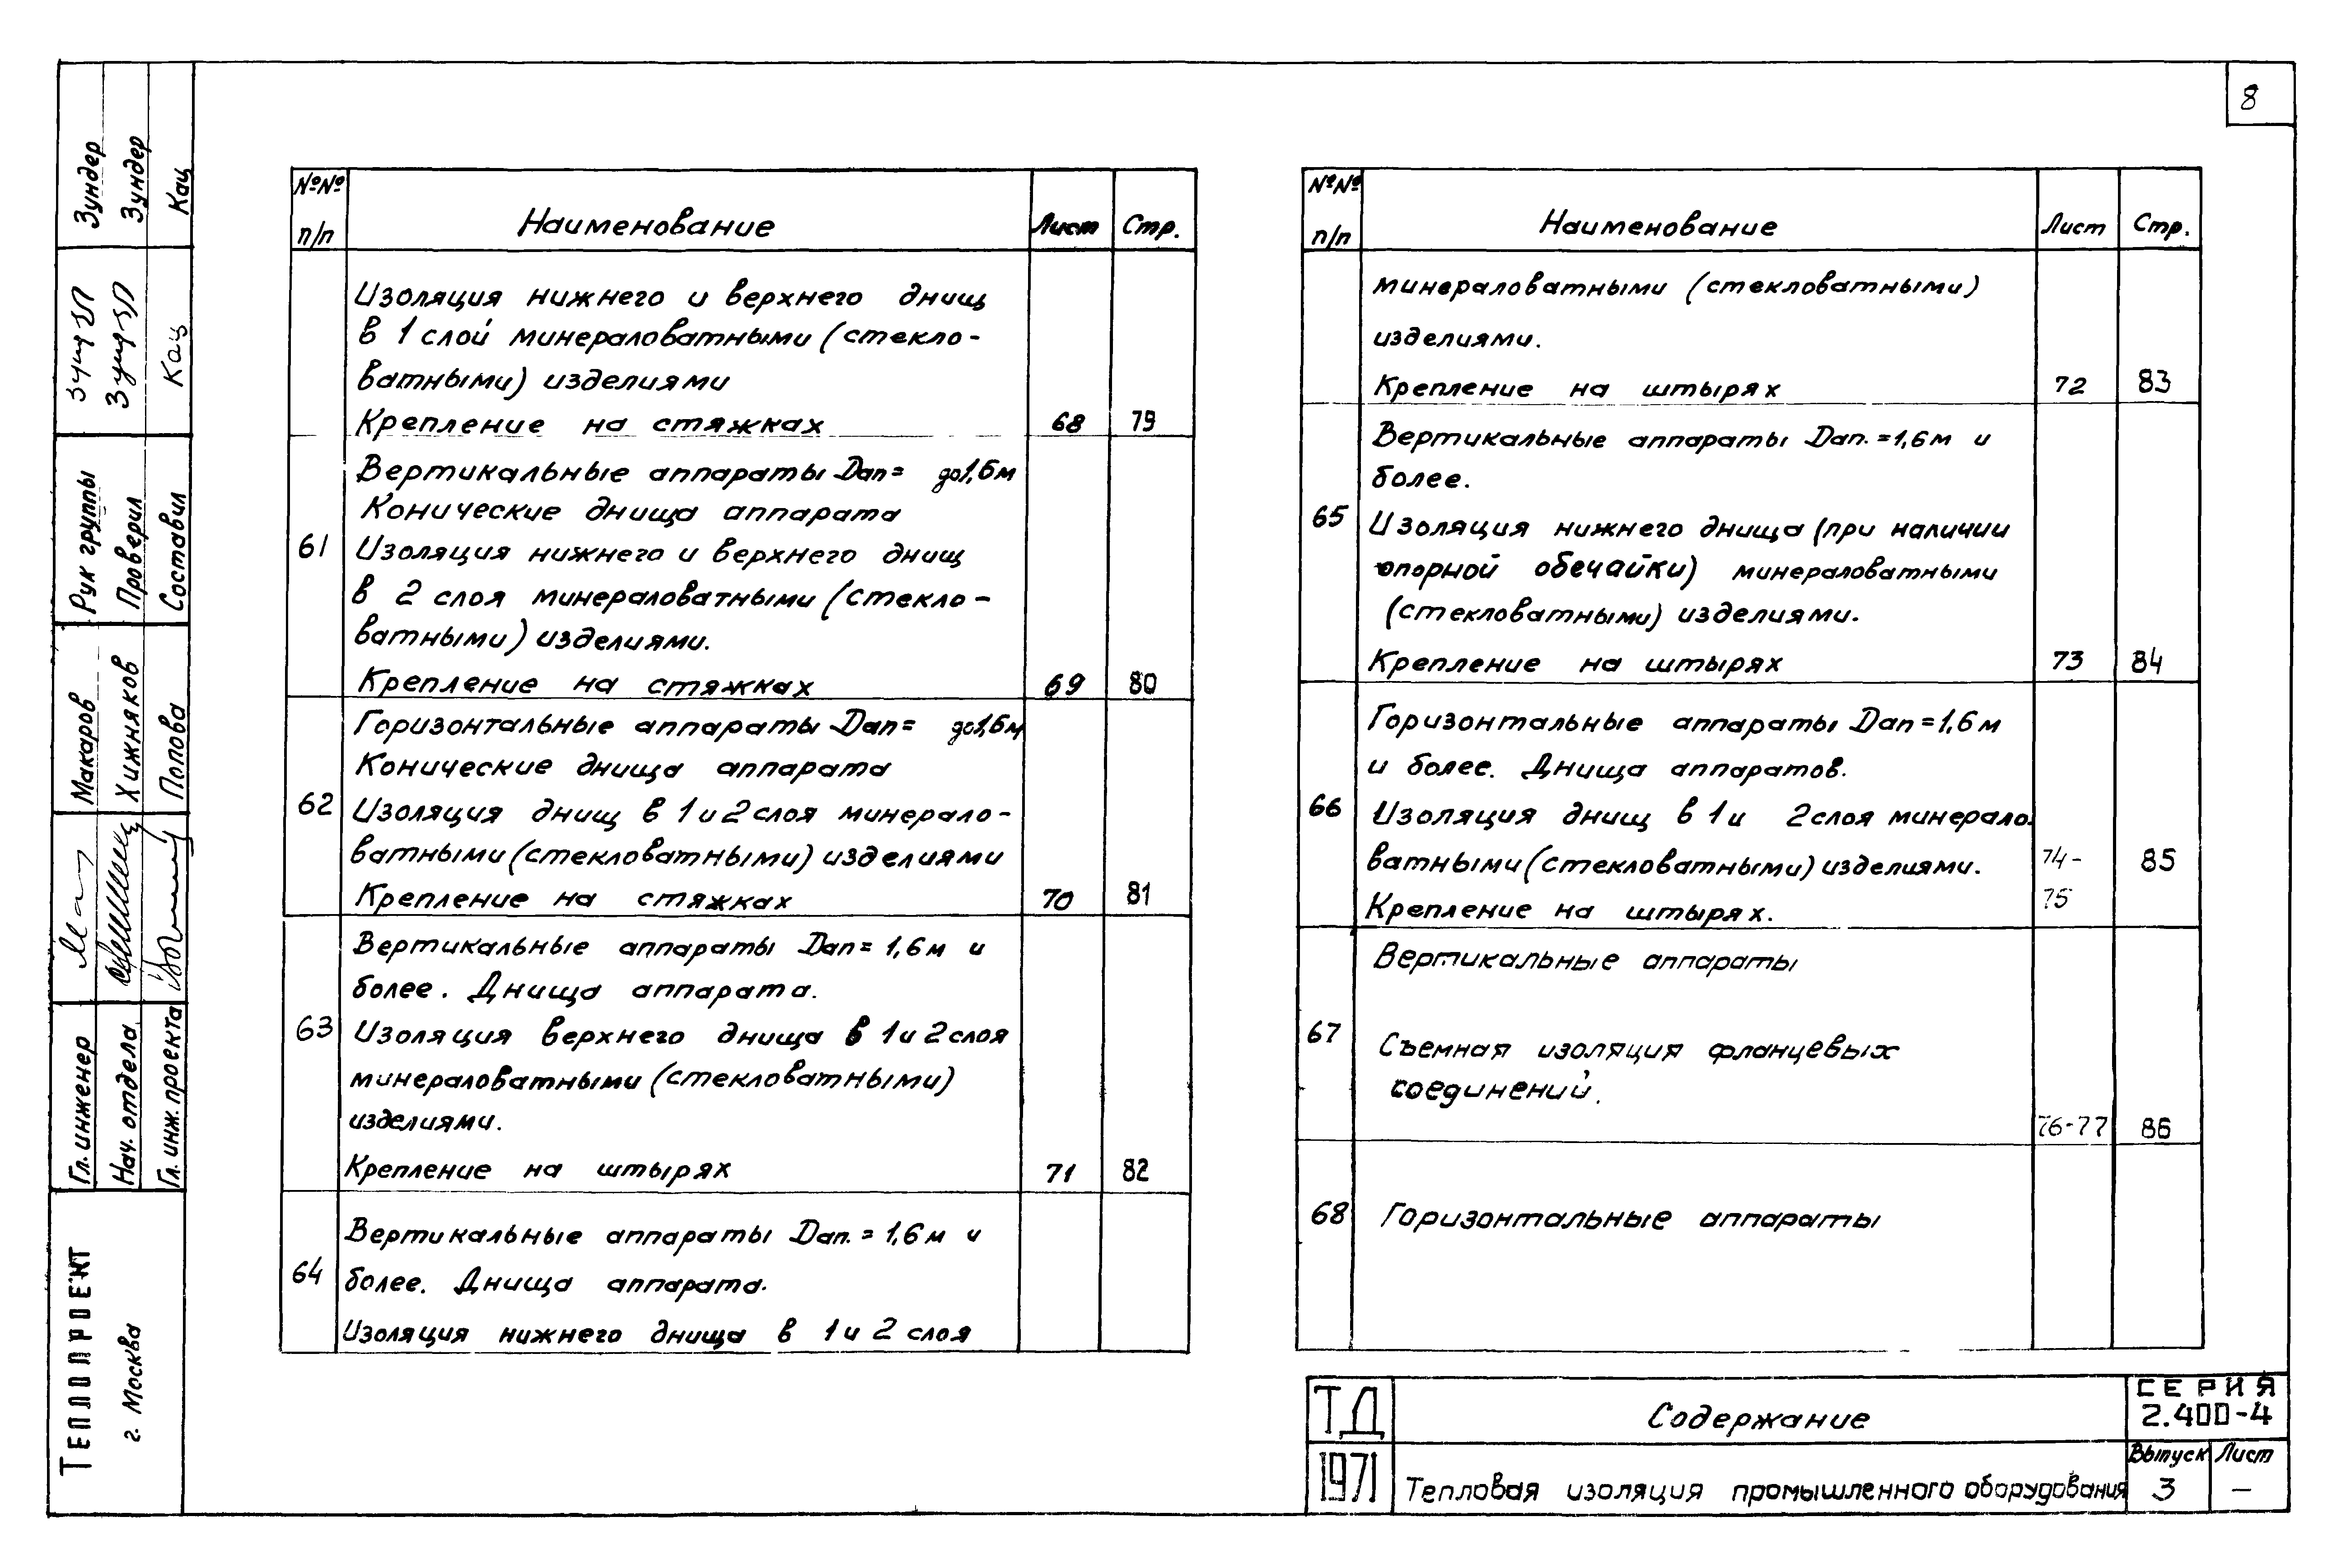 8
№№ п/п Наименование Лист Стр.
Изоляция нижнего и верхнего днищ
в 1 слой минераловатными (стекло-
ватными) изделиями
Крепление на стяжках 68 79
Вертикальные аппараты Dап= до1,6м
Конические днища аппарата
61 Изоляция нижнего и верхнего днищ
в 2 слоя минераловатными (стекло-
ватными) изделиями.
Крепление на стяжках 69 80
Горизонтальные аппараты Dап= до1,6м
Конические днища аппарата
62 Изоляция днищ в 1 и 2 слоя минерало-
ватными (стекловатными) изделиями
Крепление на стяжках 70 81
Вертикальные аппараты Dап= 1,6м и
более. Днища аппарата.
63 Изоляция верхнего днища в 1 и 2 слоя
минераловатными (стекловатными)
изделиями.
Крепление на штырях 71 82
Вертикальные аппараты Dап.= 1,6м и
64 более. Днища аппарата.
Изоляция нижнего днища в 1 и 2 слоя
№№ п/п Наименование Лист Стр.
минераловатными (стекловатными)
изделиями.
Крепление на штырях 72 83
Вертикальные аппараты Dап.=1,6м и
более.
65 Изоляция нижнего днища (при наличии
опорной обечайки) минераловатными
(стекловатными) изделиями.
Крепление на штырях 73 84
Горизонтальные аппараты Dап=1,6м
и более. Днища аппаратов.
66 Изоляция днищ в 1 и 2 слоя минерало-
ватными (стекловатными) изделиями. 74- 85
Крепление на штырях. 75
Вертикальные аппараты
67 Съемная изоляция фланцевых
соединений.
76-77 86
68 Горизонтальные аппараты
ТД Содержание СЕРИЯ
2.400-4
1971 Тепловая изоляция промышленного оборудования
Выпуск Лист
3 —
Теплопроект
г. Москва
Гл. инженер Макаров
Нач. отдела Хижняков
Гл. инж. проекта Попова
Рук группы Зундер
Проверил Зундер
Составил Кац Кац